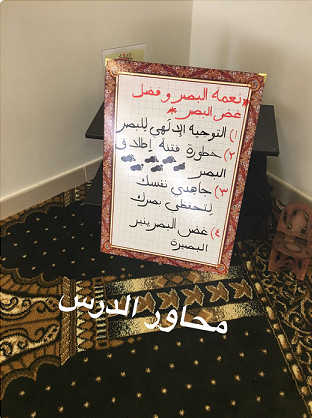 *نعمة البصر وفضل
غض البصر*
١) التوجية الإلهي للبصر
٢) خطورة فتنة إطلاق
البصر
٣) جاهدي نفسك
لتحفظي بصرك
٤) غض البصر ينير
البصيرة
محاور الدرس